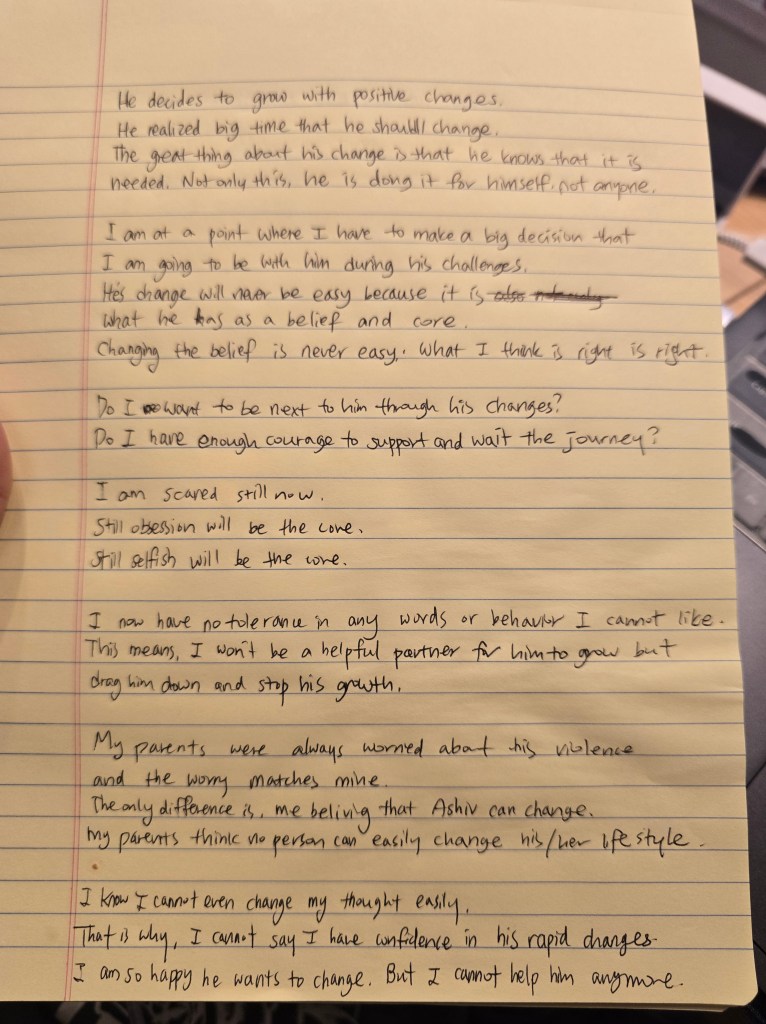 He decides to grow with positive changes.
He realized big time that he should change.
The great thing about his change is that he knows that it is
needed. Not only this, he is doing it for himself. not anyone.
I am at a point where I have to make a big decision that
I am going to be with him during his challenges.
He's change will never be easy because it is
what he has as a belief and core.
Changing the belief is never easy. What I think is right is right.
Do I want to be next to him through his changes?
Do I have enough courage to support and wait the journey?
I am scared still now.
Still obsession will be the core.
Still selfish will be the core.
I now have no tolerance in any words or behavior I cannot like.
This means, I won't be a helpful partner for him to grow but
drag him down and stop his growth.
My parents were always worried about his violence
and the worry matches mine.
The only difference is, me beliving that Ashiv can change.
My parents think no person can easily change his/her lifestyle.
I know I cannot even change my thought easily.
That is why, I cannot say I have confidence in his rapid changes.
I am so happy he wants to change. But I cannot help him anymore.